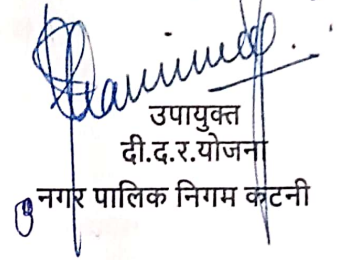 उपायुक्त
दी.द.र.योजना
नगर पालिक निगम कटनी